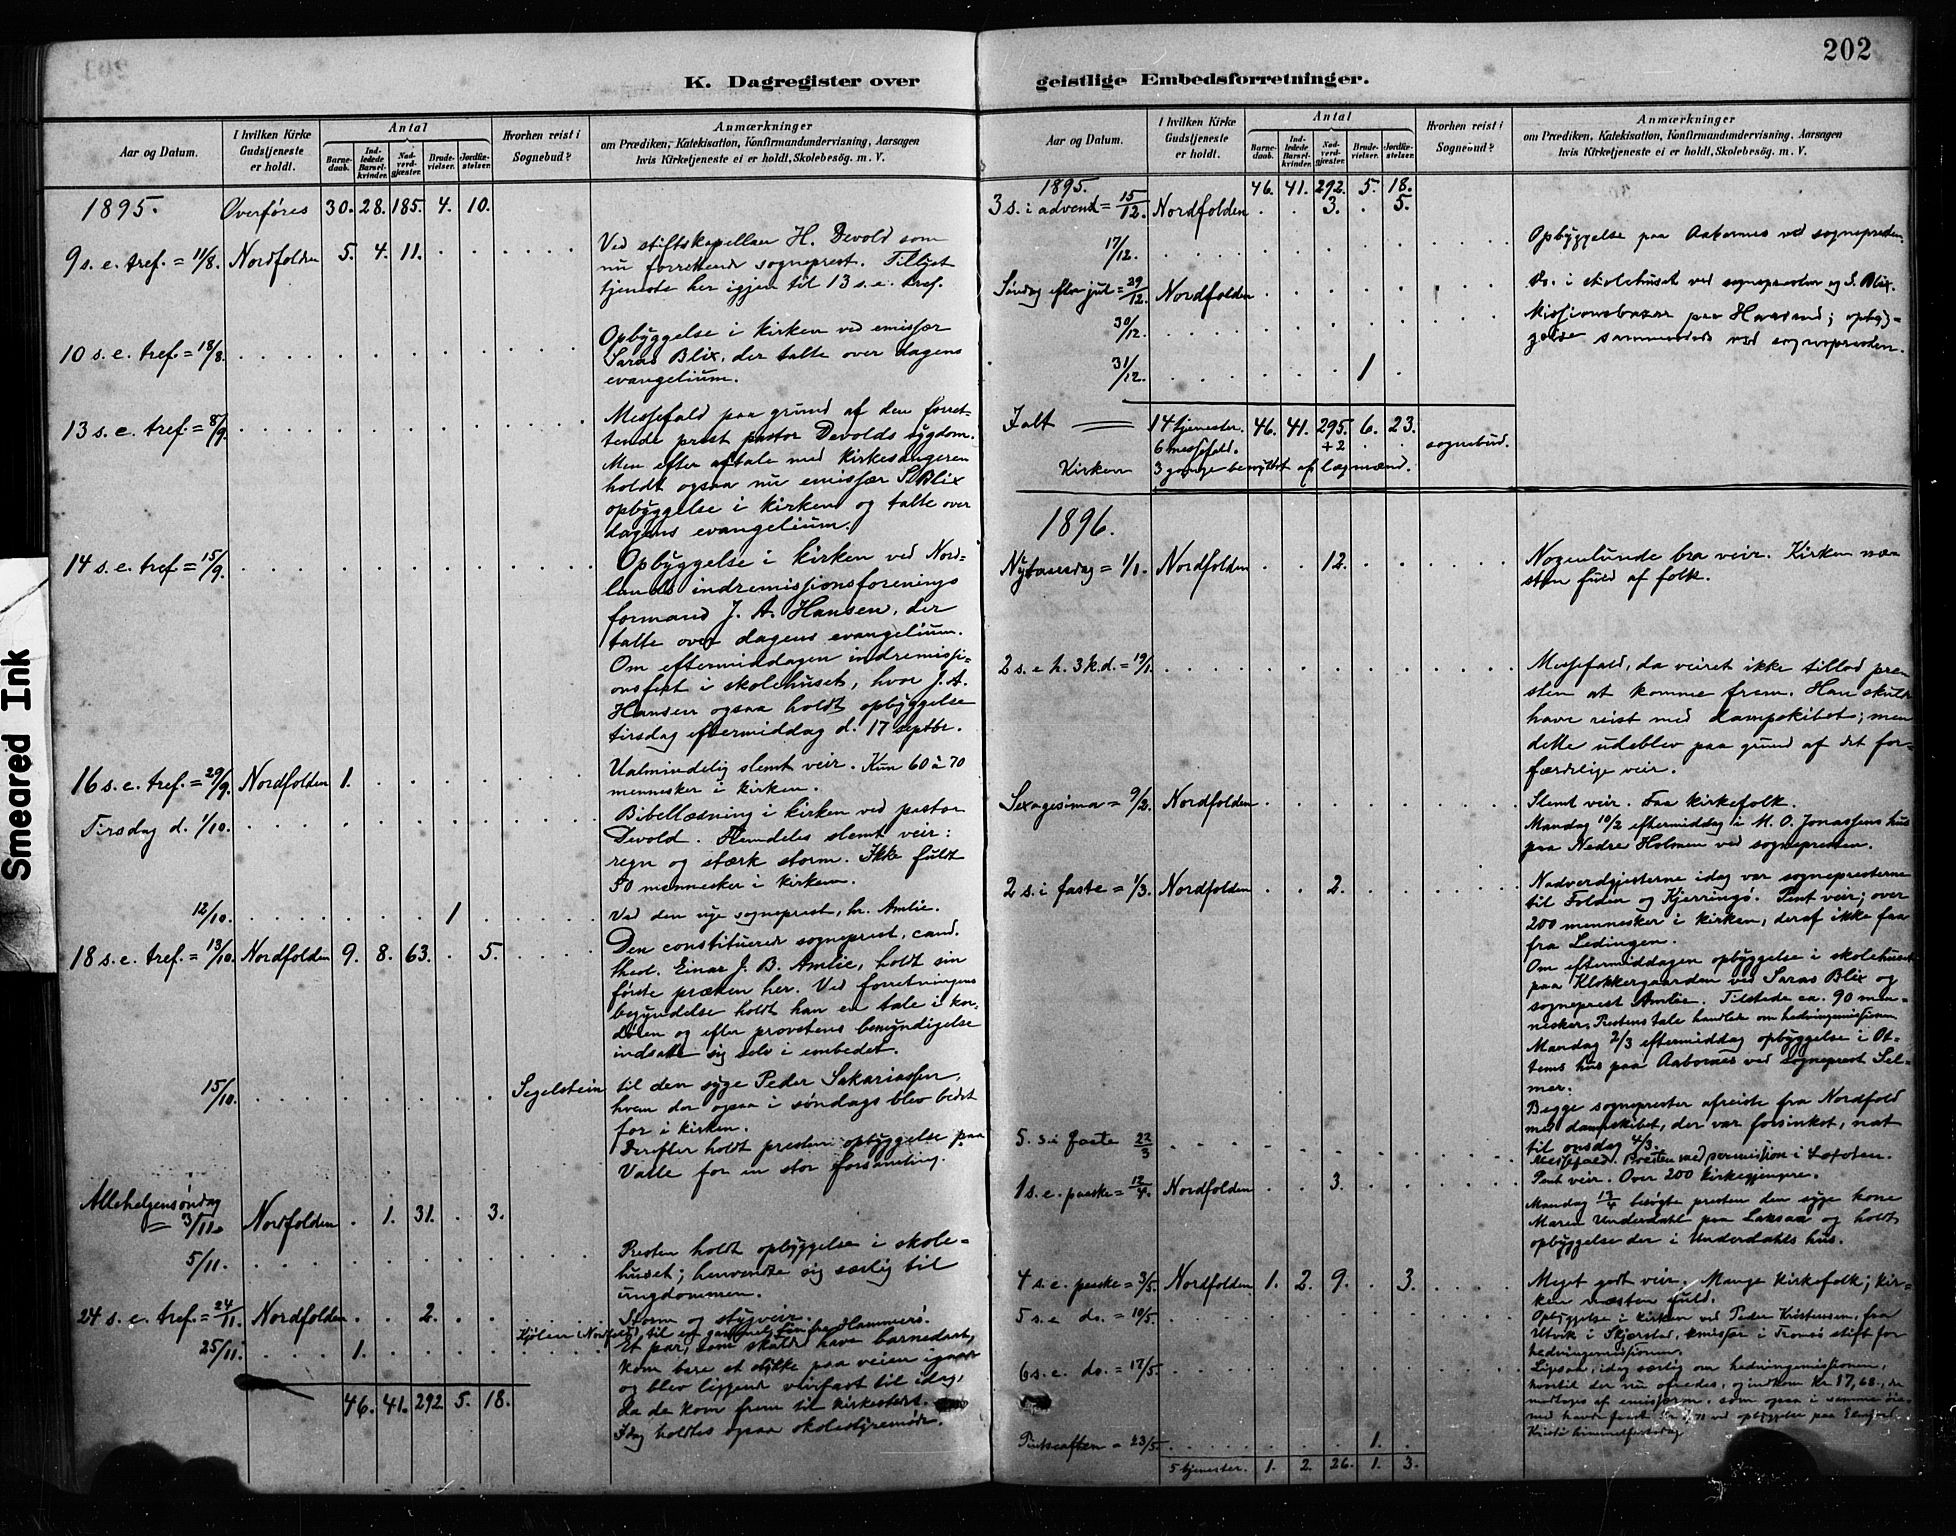 202
K. Dagregister over
geistlige Embedsforretninger.
Aar og Datum.
I hvilken Kirke Gudstjeneste er holdt.
Antal
Barnedaab.
Indledede Barselkvinder.
Nadverdgjæster.
Brudevielser.
Jordfæstelser.
Hvorhen reist i Sognebud?
Anmærkninger
om Prædiken, Katekisation, Konfirmandundervisning, Aarsagen
hvis Kirketjeneste ei er holdt, Skolebesøg. m. V.
1895. Overføres 30. 28. 185. 4. 10.
9 s. e. tref. = 11/8. Nordfolden 5. 4. 11.
Ved stiftskapellan H. Devold som
nu forrettende sogneprest. Tillyst
tjeneste her igjen til 13 s. e. tref.
10 s. e. tref. = 18/8.
Opbyggelse i kirken ved emissær
Saras Blix, der talte over dagens
evangelium.
13 s. e. tref. = 8/9.
Messefald paa grund af den forret-
tende prest pastor Devolds sygdom.
Men efter aftale med kirkesangeren
holdt ogsaa nu emissær S. Blix
opbyggelse i kirken og talte over
dagens evangelium.
14 s. e. tref = 15/9.
Opbyggelse i kirken ved Nord-
lands indremissjonsforenings
formand J. A. Hansen, der
talte over dagens evangelium.
Om eftermiddagen indremissji-
onsfest i skolehuset, hvor J. A.
Hansen ogsaa holdt opbyggelse
tirsdag eftermiddag d. 17 septbr.
16 s. e. tref. = 29/9. Nordfolden 1.
Ualmindelig slemt veir. Kun 60 à 70
mennesker i kirken.
Tirsdag d. 1/10.
Bibellæsning i kirken ved pastor
Devold. Fremdeles slemt veir:
regn og stærk storm. Ikke fuldt
50 mennesker i kirken.
12/10. 1
Ved den nye sogneprest, hr. Amlie.
18 s. e. tref. = 13/10. Nordfolden 9. 8. 63. 5.
Den constituerede sogneprest, cand.
theol. Einar J. B. Amlie, holdt sin
første præken her. Ved forretningens
begyndelse holdt han en tale i kor-
døren og efter provstens bemyndigelse
indsatte sig selv i embedet.
15/10. Segelstein
til den syge Peder Sakariassen,
hvem der ogsaa i søndags blev bedet
for i kirken.
Derefter holdt presten opbyggelse paa
Valle for en stor forsamling.
Allehelgensøndag
= 3/11. Nordfolden 1. 31. 3.
5/11.
Presten holdt opbyggelse i skole-
huset; henvendte sig særlig til
ungdommen.
24 s. e. tref. = 24/11. Nordfolden 2.
Storm og stygveir.
Kjølen i Nordfold, til en gammel
25/11. 1.
Et par, som skulde have barnedaab,
kom bare et stykke paa veien igaar
og blev liggende veirfast til idag,
da de kom frem til kirkestedet.
Idag holdtes ogsaa skolestyremøde.
46. 41. 292 5. 18.
Aar og Datum.
I hvilken Kirke Gudstjeneste er holdt.
Antal
Barnedaab.
Indledede Barselkvinder.
Nadverdgjæster.
Brudevielser.
Jordfæstelser.
Hvorhen reist i Sognebud?
Anmærkninger
om Prædiken, Katekisation, Konfirmandundervisning, Aarsagen
hvis Kirketjeneste ei er holdt, Skolebesøg. m. V.
1895. 46. 41. 292. 5. 18.
3 s. i advend = 15/12. Nordfolden 3. 5.
17/12.
Opbyggelse paa Aakernes ved sognepresten.
Søndag efter jul = 29/12. Nordfolden
Do. i skolehuset ved sognepresten og S. Blix.
30/12.
Missionsbazar paa Havsand; opbyg-
gelse sammesteds ved sognepresten.
31/12. 1
Ialt = 14 tjenester. 46. 41. 295. 6. 23.
6 messefald. +2 sognebud.
Kirken 3 gange benyttet af lægmænd.
1896.
Nytaarsdag = 1/1. Nordfolden 12.
Nogenlunde bra veir. Kirken næ-
sten fuld af folk.
2 s. e h. 3 k. d. = 19/1.
Messefald, da veiret ikke tillod pre-
sten at komme frem. Han skulde
have reist med dampskibet; men
dette udeblev paa grund af det for-
færdelige veir.
Sexagesima = 9/2. Nordfolden
Slemt veir. Faa kirkefolk.
Mandag 10/2 eftermiddag i M. O. Jonassens hus
paa Nedre Holmen ved sognepresten.
2 s. i faste = 1/3. Nordfolden 2.
Nadverdgjesterne idag var sognepresterne
til Folden og Kjerringø. Pent veir; over
200 mennesker i kirken, deraf ikke faa
fra Ledingen.
Om eftermiddagen opbyggelse i skolehuset
paa Klokkergaarden ved Saras Blix og
sogneprest Amlie. Tilstede ca. 90 men-
nesker. Prestens tale handlet om hedningemissionen
Mandag 2/3 eftermiddag opbyggelse i Ot-
tems hus paa Aabornes ved sogneprest Sel-
mer.
Begge sogneprester afreiste fra Nordfold
med dampskibet, der var forsinket, nat
til onsdag 4/3.
5. s i faste 22/3
Messefald. Presten med permission i Lofoten.
1 s. e. paaske = 12/4. Nordfolden 3.
Pent veir. Over 200 kirkegjengere.
Mandag 13/4 besøgte presten den syge kone
Maren Underdahl paa Laksaa og holdt
opbyggelse der i Underdahls hus.
4 s. e. paaske = 3/5. Nordfolden 1. 2. 9. 3.
Meget godt veir. Mange kirkefolk; kir-
ken næsten fuld.
5 s. e do. = 10/5.
Opbyggelse i kirken ved Peder Kristensen, fra
Utvik i Skjerstad, emissær i Tromsø stift for
hedningemissionen.
6 s. e. do. = 17/5.
Ligesaa, idag særlig om hedningemissionen,
hvortil der nu ofredes, og indkom Kr. 17,68,
modtoges af emissæren, som ogsaa i samme øie-
med havde faaet ved opbyggelse paa
Kristi himmelfartsdag
Pintseaften = 23/5. 1.
5 tjenester. 1. 2. 26. 1. 3.
Smeared Ink